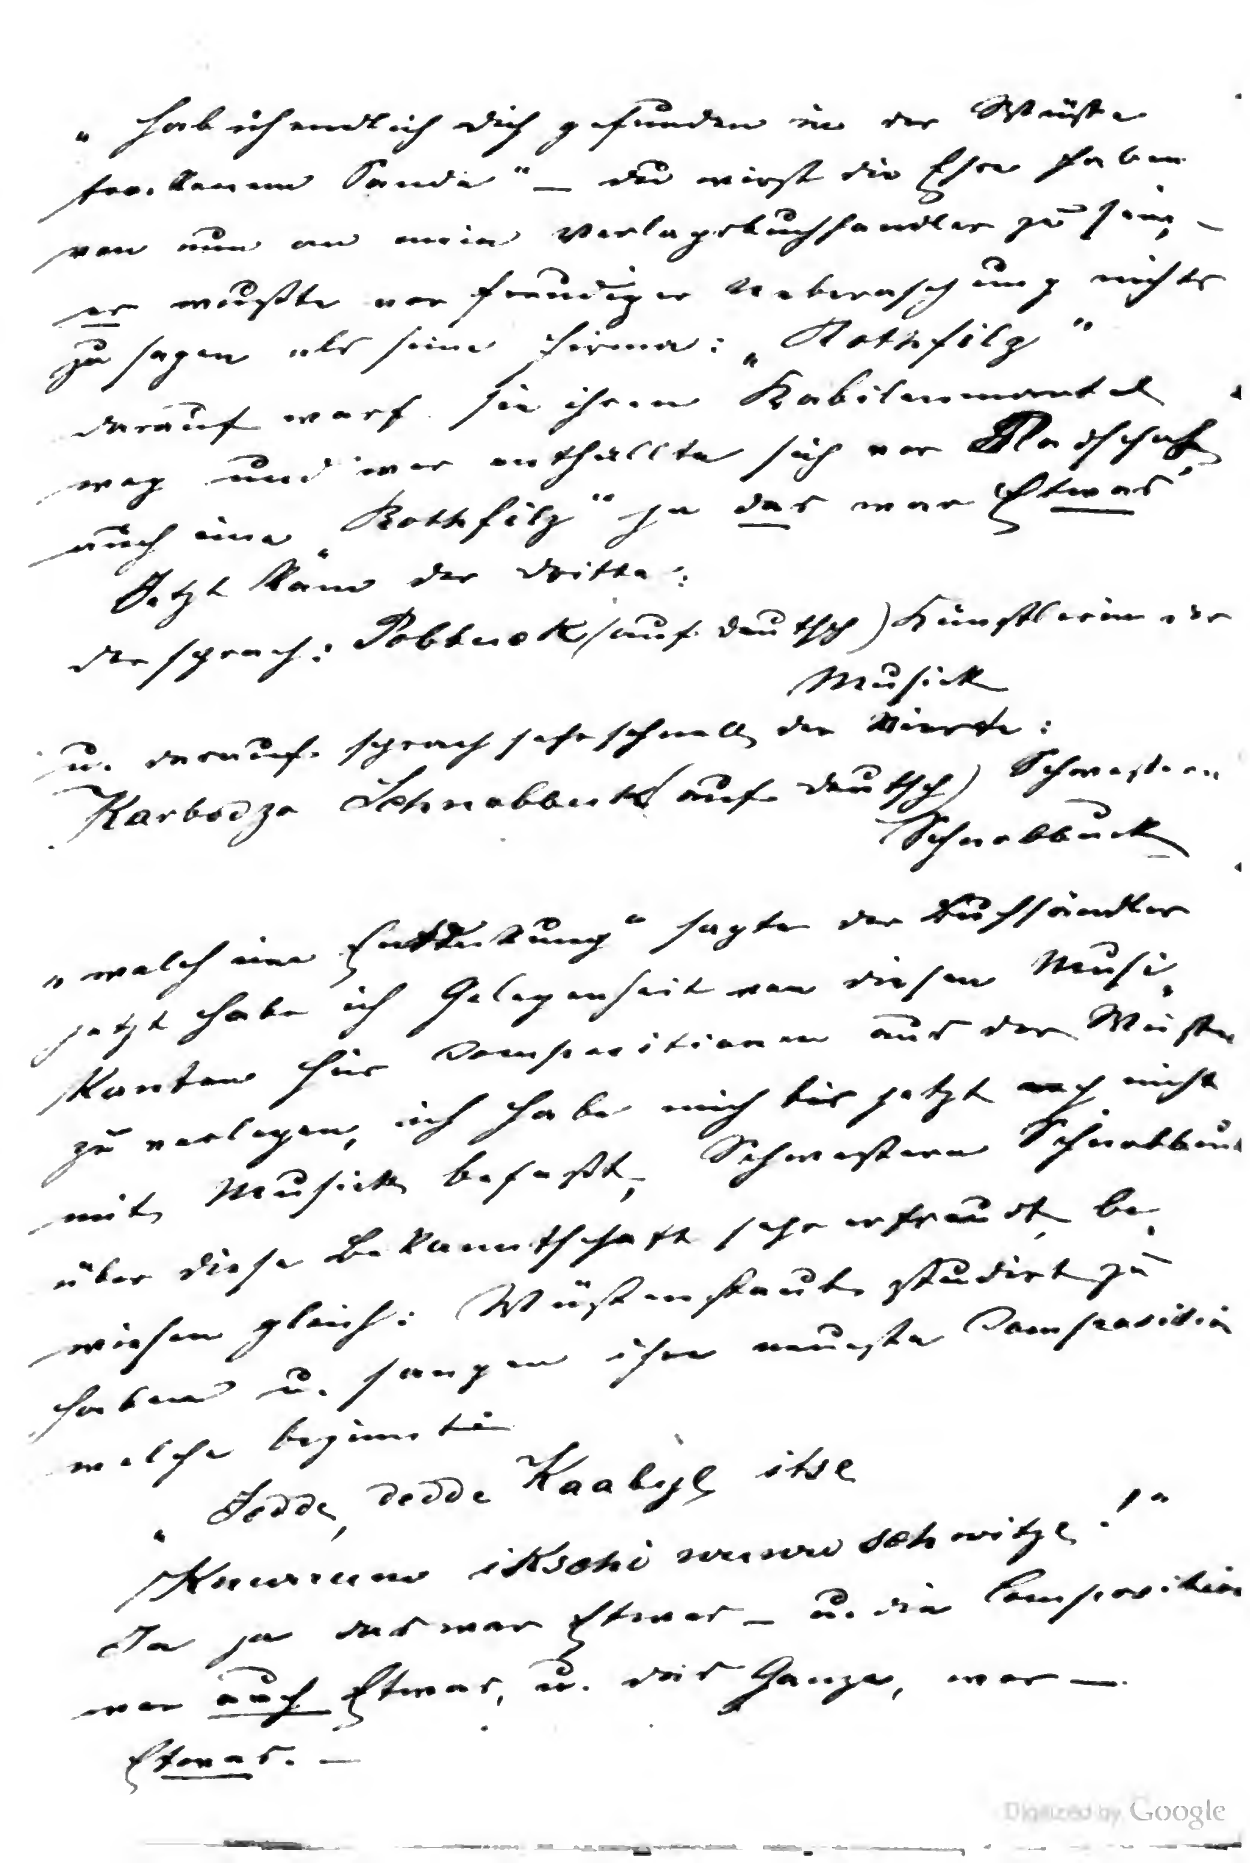 „Hab ich endlich dich gefunden in der Wüste
trockenem Sande" — du wirst die Ehre haben
von nun an mein Verlagsbuchhandler zu sein, —
er wußte vor freudiger Ueberaschung nichts
zu sagen als seine Firma: „Rothfilz"
darauf warf sie ihren Kabilenmantel
weg und wer enthüllte sich vor
auch eine „Rothfilz" ja das war Etwas
Jetzt kam der dritte:
der sprach: Pobbuck (auf deutsch) Künstlerin der
Musick
u. darauf sprach sehr schnell der Vierte:
Karbodza Schnabbuck (auf deutsch) Schwestern
Schnabbuck
„welch eine Entdeckung" sagte der Buchhändler
jetzt habe ich Gelegenheit von diesen Musi„
kanten hier Compositionen aus der Wüste
zu verlegen, ich habe mich bis jetzt nicht
mit Musick befaßt, Schwestern Schnabbuck
über diese Bekanntschaft sehr erfreudt, be„
wiesen gleich: Wüstenstaub studirt zu
haben u. sangen ihre neueste Composition
welche beginnt:
„Jedde, dedde Kaabyl itse
ikschi schwitze!"
Ja ja das war Etwas — u. die Composition
war auch Etwas, u. das Ganze, war —
Etwas. —
Digitized by Google